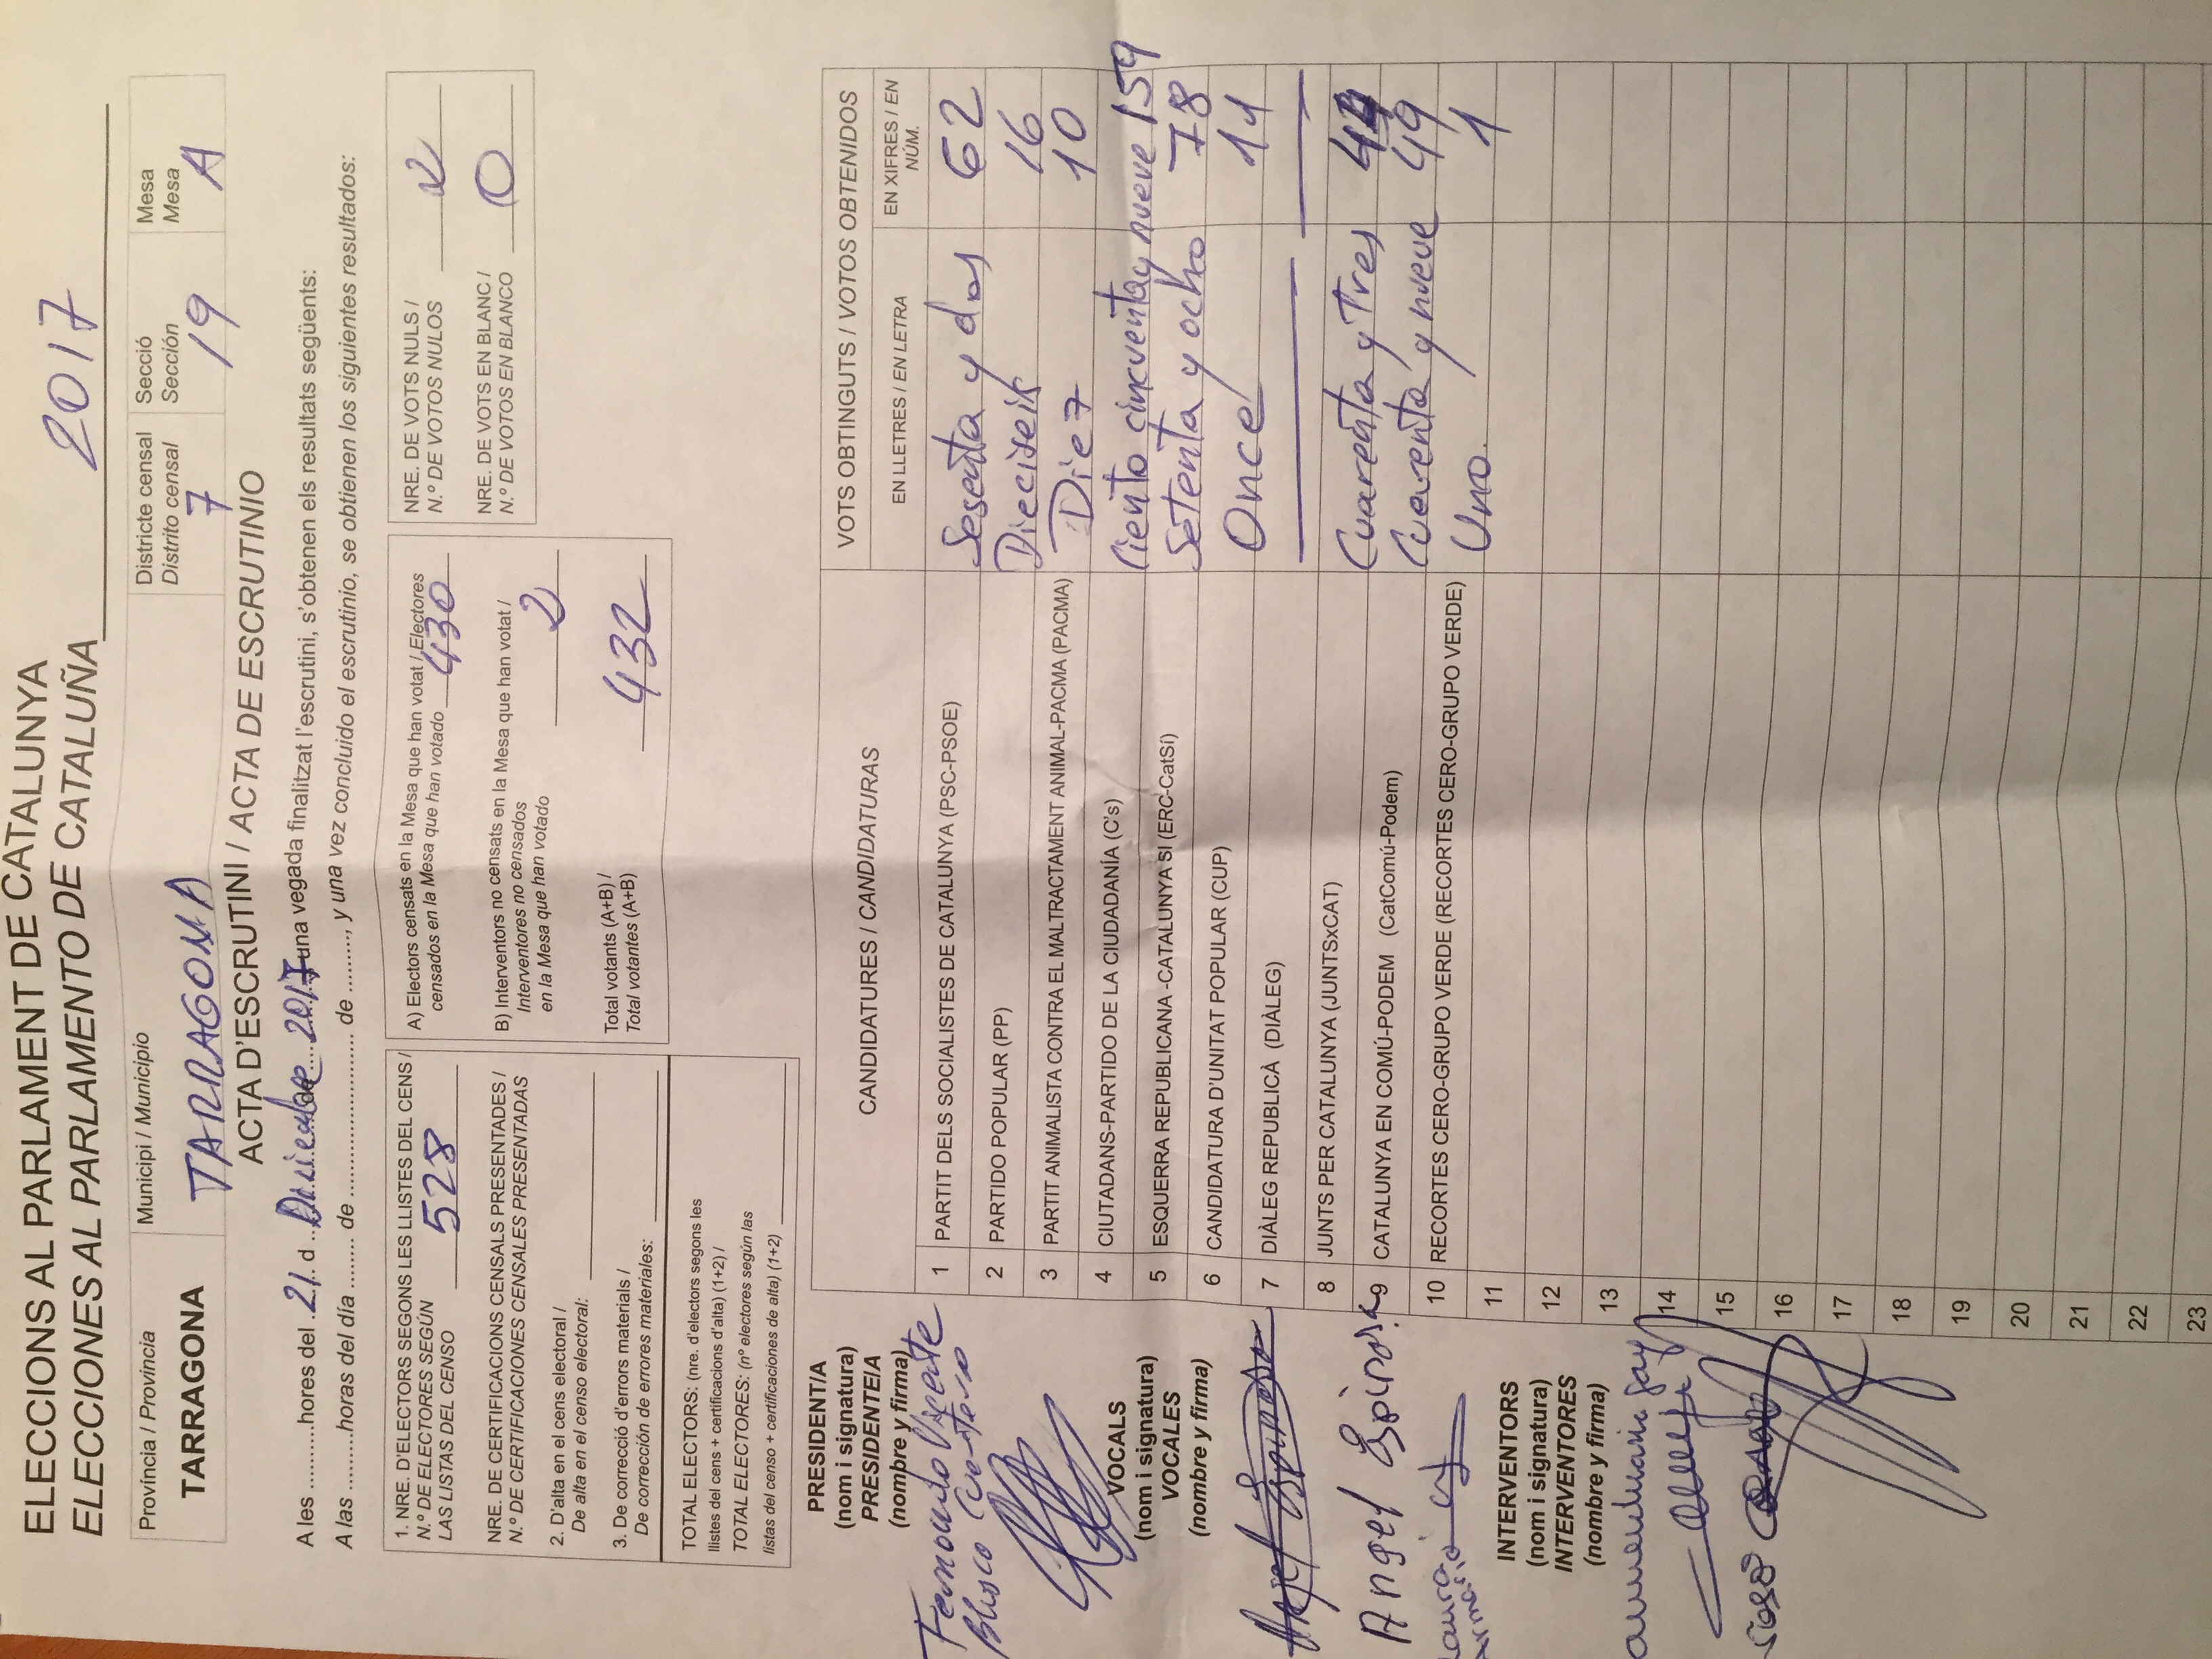 ELECCIONS AL PARLAMENT DE CATALUNYA
ELECCIONES AL PARLAMENTO DE CATALUÑA 2017
Província / Provincia
TARRAGONA
Municipi / Municipio
TARRAGONA
Districte censal
Distrito censal
7
Secció
Sección
19
Mesa
Mesa
A
ACTA D'ESCRUTINI / ACTA DE ESCRUTINIO
A les ..........hores del 21 d Diciembre de 2017 una vegada finalitzat l'escrutini, s'obtenen els resultats següents:
A las .........horas del día ........ de .......................... de ........., y una vez concluido el escrutinio, se obtienen los siguientes resultados:
1. NRE. D'ELECTORS SEGONS LES LLISTES DEL CENS /
N.º DE ELECTORES SEGÚN
LAS LISTAS DEL CENSO 528
NRE. DE CERTIFICACIONS CENSALS PRESENTADES /
N.º DE CERTIFICACIONES CENSALES PRESENTADAS
2. D'alta en el cens electoral /
De alta en el censo electoral:
3. De correcció d'errors materials /
De corrección de errores materiales:
TOTAL ELECTORS: (nre. d'electors segons les
llistes del cens + certificacions d'alta) (1+2) /
TOTAL ELECTORES: (nº electores según las
listas del censo + certificaciones de alta) (1+2)
A) Electors censats en la Mesa que han votat / Electores
censados en la Mesa que han votado 430
B) Interventors no censats en la Mesa que han votat /
Interventores no censados
en la Mesa que han votado 2
Total votants (A+B) /
Total votantes (A+B) 432
NRE. DE VOTS NULS /
N.º DE VOTOS NULOS 2
NRE. DE VOTS EN BLANC /
N.º DE VOTOS EN BLANCO 0
PRESIDENT/A
(nom i signatura)
PRESIDENTE/A
(nombre y firma)
Fernando Vicente
Blasco
VOCALS
(nom i signatura)
VOCALES
(nombre y firma)
Angel Espinosa
Angel Espinosa
Laura
Armario
INTERVENTORS
(nom i signatura)
INTERVENTORES
(nombre y firma)
José
CANDIDATURES / CANDIDATURAS
VOTS OBTINGUTS / VOTOS OBTENIDOS
EN LLETRES / EN LETRA
EN XIFRES / EN
NÚM.
1 PARTIT DELS SOCIALISTES DE CATALUNYA (PSC-PSOE) Sesenta y dos 62
2 PARTIDO POPULAR (PP) Dieciseis 16
3 PARTIT ANIMALISTA CONTRA EL MALTRACTAMENT ANIMAL-PACMA (PACMA) Diez 10
4 CIUTADANS-PARTIDO DE LA CIUDADANÍA (C's) Ciento cincuenta y nueve 159
5 ESQUERRA REPUBLICANA -CATALUNYA SI (ERC-CatSí) Setenta y ocho 78
6 CANDIDATURA D'UNITAT POPULAR (CUP) Once 11
7 DIÀLEG REPUBLICÀ (DIÀLEG)
8 JUNTS PER CATALUNYA (JUNTSxCAT) Cuarenta y Tres
9 CATALUNYA EN COMÚ-PODEM (CatComú-Podem) Cuarenta y nueve 49
10 RECORTES CERO-GRUPO VERDE (RECORTES CERO-GRUPO VERDE) Uno. 1
11
12
13
14
15
16
17
18
19
20
21
22
23